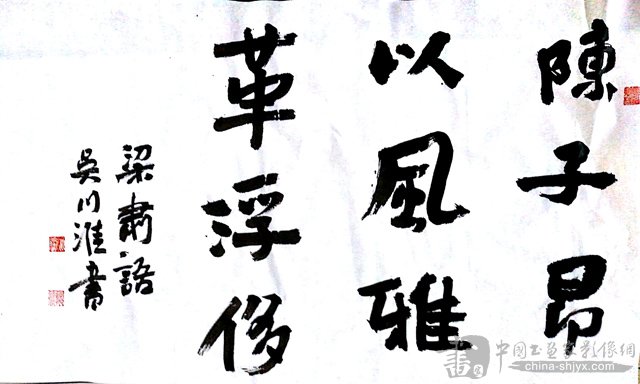 陳子昂
以風雅
革浮侈
梁肅語
吳川淮書
中国书画家影像網
china-shjyx.com